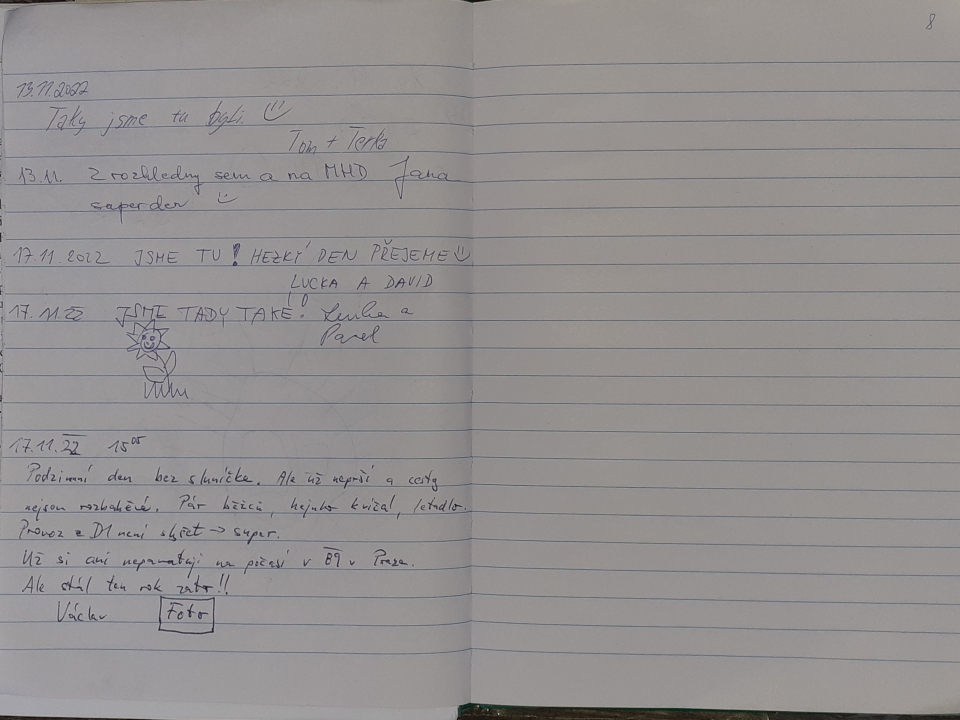 8
13.11.2022
Taky jsme tu byli.
Tom + Terka
13.11. Z rozhledny sem a na MHD Jana
super den
17.11.2022 JSME TU! HEZKÝ DEN PŘEJEME
LUCKA A DAVID
17.11.22 JSME TADY TAKÉ! Lenka a
Pavel
17.11.22 15⁰⁵
Podzimní den bez sluníčka. Ale už neprší a cesty
nejsou rozbahněné. Pár běžců, hejnko kvíčal, letadlo.
Provoz z D1 není slyšet → super.
Už si ani nepamatuji na počasí v 89 v Praze.
Ale stál ten rok zato!!
Václav Foto